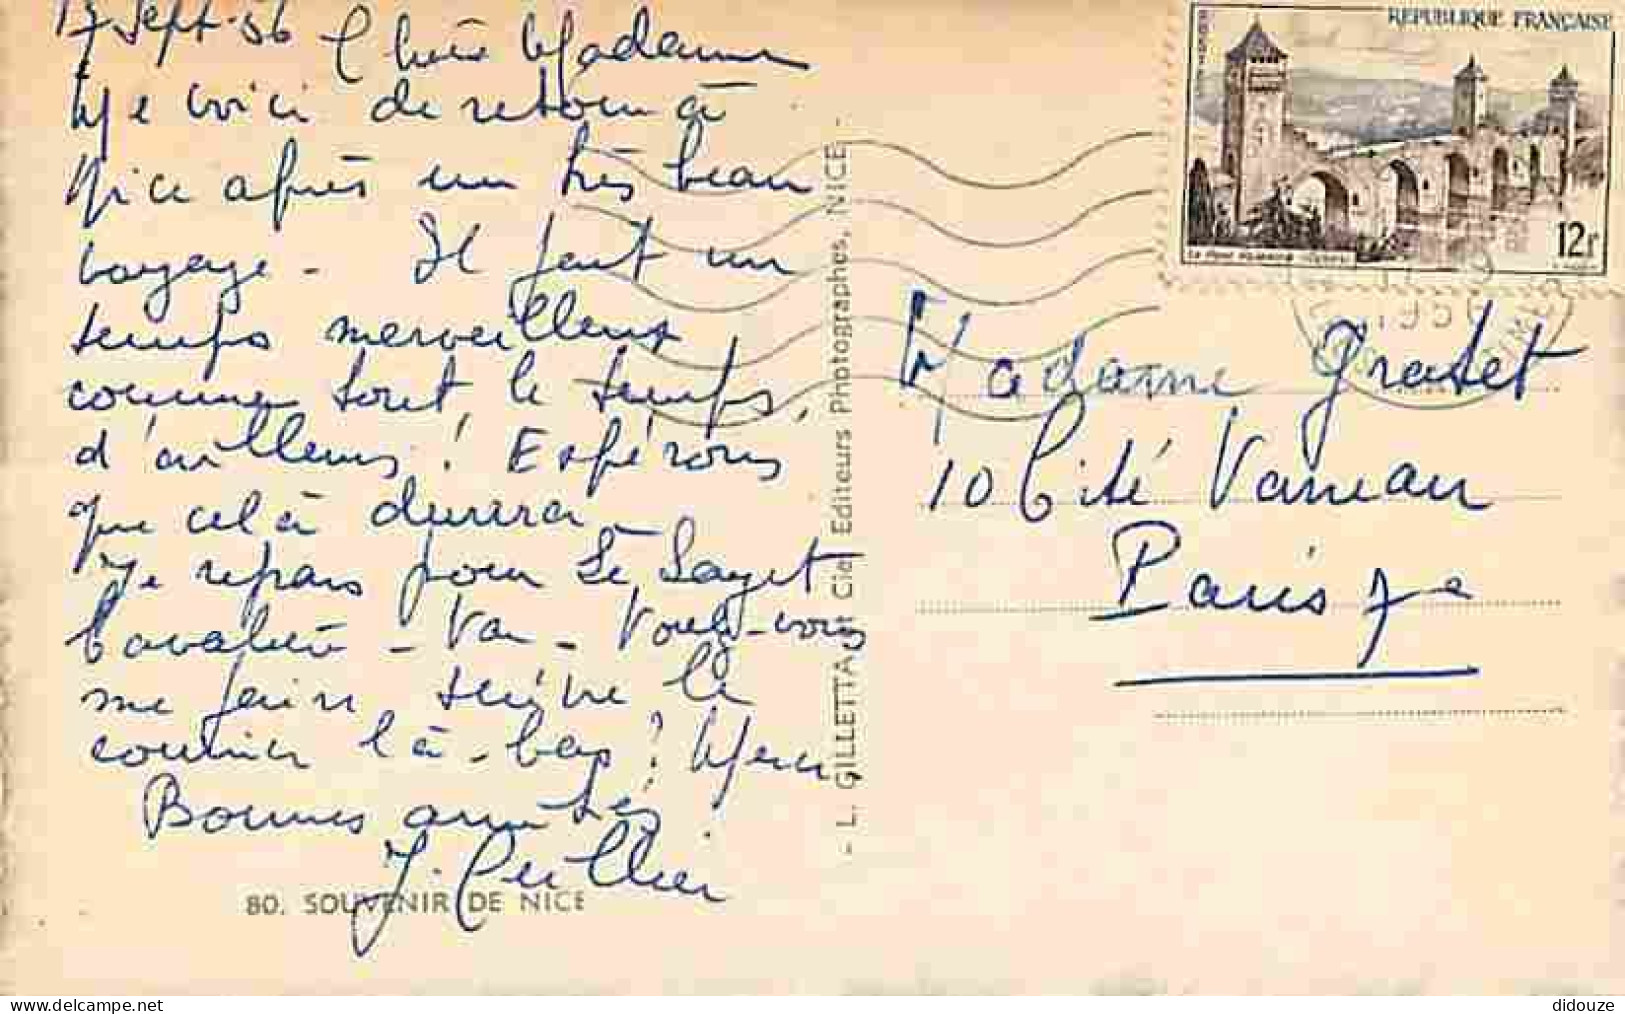 17 Sept. 56
Chère Madame
Me voici de retour à
Nice après un très beau
voyage - Il fait un
temps merveilleux
comme tout le temps,
d'ailleurs! Espérons
que celà durera
Je repars pour Le Layet
Cavalière - Var - Voulez-vous
me faire suivre le
courrier là-bas? Merci,
Bonnes amitiés
80. SOUVENIR DE NICE
- L. GILLETTA et Cie, Editeurs Photographes, NICE -
REPUBLIQUE FRANÇAISE
12F
1956
Madame Gratet
10 Cité Vaneau
Paris 7e
didouze